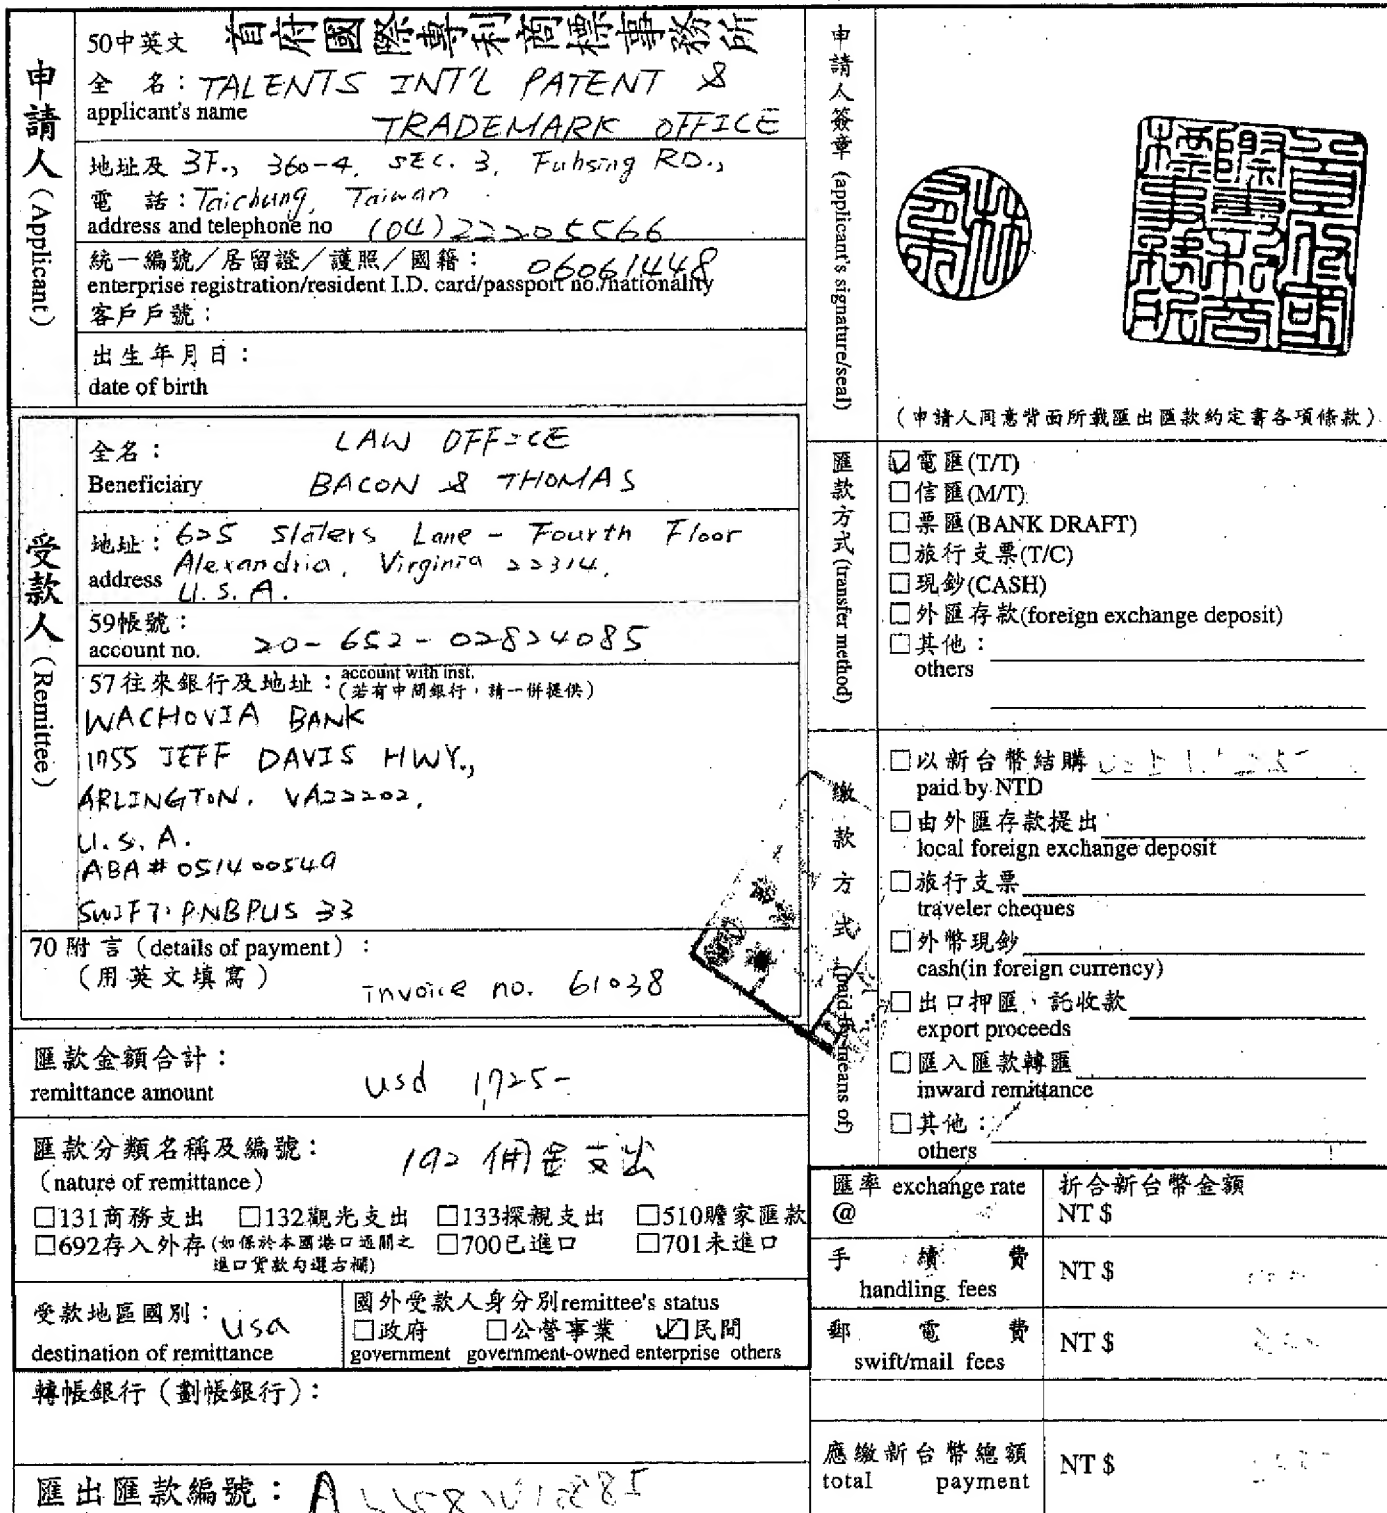 申請人(Applicant)
50中英文 首府國際專利商標事務所
全名:TALENTS INT'L PATENT &
applicant's name TRADEMARK OFFICE
地址及 3F., 360-4, SEC. 3, Fuhsing RD.,
電話:Taichung, Taiwan
address and telephone no (04)22205566
統一編號/居留證/護照/國籍: 06061448
enterprise registration/resident I.D. card/passport no./nationality
客戶戶號:
出生年月日:
date of birth
申請人簽章(applicant's signature/seal)
(申請人同意背面所載匯出匯款約定書各項條款)
受款人(Remittee)
全名: LAW OFFICE
Beneficiary BACON & THOMAS
地址:625 Slaters Lane - Fourth Floor
address Alexandria, Virginia 22314,
U.S.A.
59帳號:
account no. 20-652-02824085
57往來銀行及地址:account with inst.
(若有中間銀行,請一併提供)
WACHOVIA BANK
1755 JEFF DAVIS HWY.,
ARLINGTON, VA22202,
U.S.A.
ABA# 051400549
SWIFT: PNBPUS 33
70附言(details of payment):
(用英文填寫) invoice no. 61038
匯款金額合計:
remittance amount usd 1,725-
匯款分類名稱及編號: 192 佣金支出
(nature of remittance)
□131商務支出 □132觀光支出 □133探親支出 □510贍家匯款
□692存入外存(如係於本國港口通關之進口貨款勾選右欄) □700已進口 □701未進口
受款地區國別:usa
destination of remittance
國外受款人身分別remittee's status
□政府 □公營事業 ☑民間
government government-owned enterprise others
轉帳銀行(劃帳銀行):
匯出匯款編號:
匯款方式(transfer method)
☑電匯(T/T)
□信匯(M/T)
□票匯(BANK DRAFT)
□旅行支票(T/C)
□現鈔(CASH)
□外匯存款(foreign exchange deposit)
□其他:
others
繳款方式(paid by means of)
□以新台幣結購
paid by NTD
□由外匯存款提出
local foreign exchange deposit
□旅行支票
traveler cheques
□外幣現鈔
cash(in foreign currency)
□出口押匯、託收款
export proceeds
□匯入匯款轉匯
inward remittance
□其他:
others
匯率 exchange rate 折合新台幣金額
@ NT $
手續費 NT $
handling fees
郵電費 NT $
swift/mail fees
應繳新台幣總額 NT $
total payment